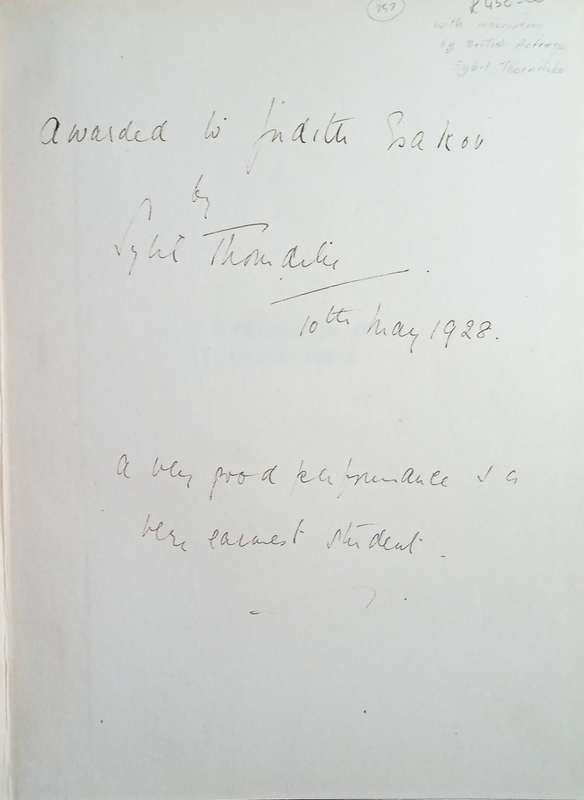 157
R450-00
with inscription
by British Actress
Sybil Thorndike
Awarded to Judith Isakov
by
Sybil Thorndike
10th May 1928.
A very good performance & a
very earnest student.